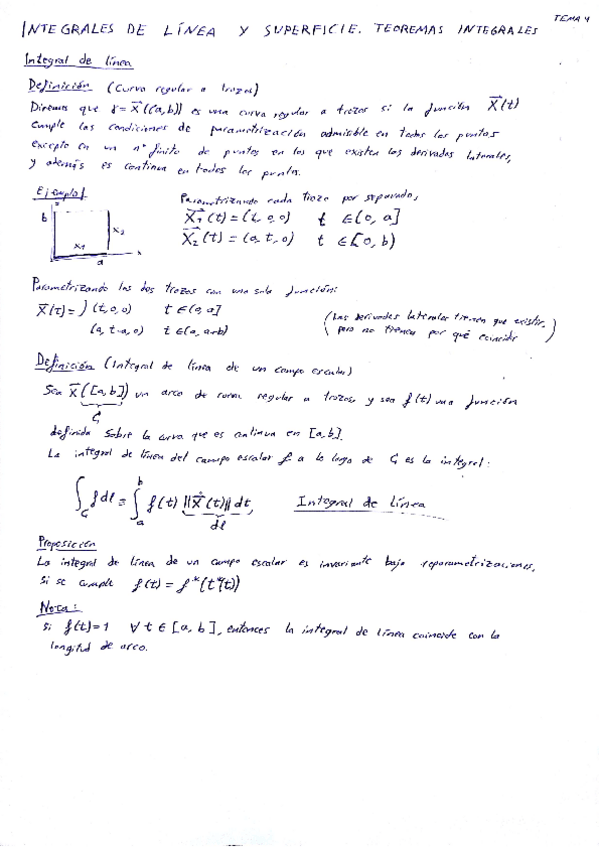 TEMA 4
INTEGRALES DE LÍNEA Y SUPERFICIE. TEOREMAS INTEGRALES
Integral de línea
Definición (Curva regular a trozos)
Diremos que γ = X⃗([a,b]) es una curva regular a trozos si la función X⃗(t)
cumple las condiciones de parametrización admisible en todos los puntos
excepto en un nº finito de puntos en los que existen las derivadas laterales,
y además es continua en todos los puntos.
Ejemplo
Parametrizando cada trozo por separado,
X⃗₁(t) = (t, 0, 0) t ∈ (0, a]
X⃗₂(t) = (a, t, 0) t ∈ [0, b)
b
x₂
x₁
x
a
Parametrizando los dos trozos con una sola función:
X⃗(t) = } (t, 0, 0) t ∈ (0, a]
(a, t-a, 0) t ∈ (a, a+b)
(Las derivadas laterales tienen que existir,
pero no tienen por qué coincidir)
Definición (Integral de línea de un campo escalar)
Sea X⃗([a,b]) un arco de curva regular a trozos y sea f(t) una función
G
definida sobre la curva que es continua en [a,b].
La integral de línea del campo escalar f a lo largo de G es la integral:
∫_G f dl = ∫_a^b f(t) ||X⃗'(t)|| dt, Integral de Línea
dl
Proposición
La integral de línea de un campo escalar es invariante bajo reparametrizaciones,
si se cumple f(t) = f*(t*(t))
Nota:
si f(t)=1 ∀ t ∈ [a, b], entonces la integral de línea coincide con la
longitud de arco.